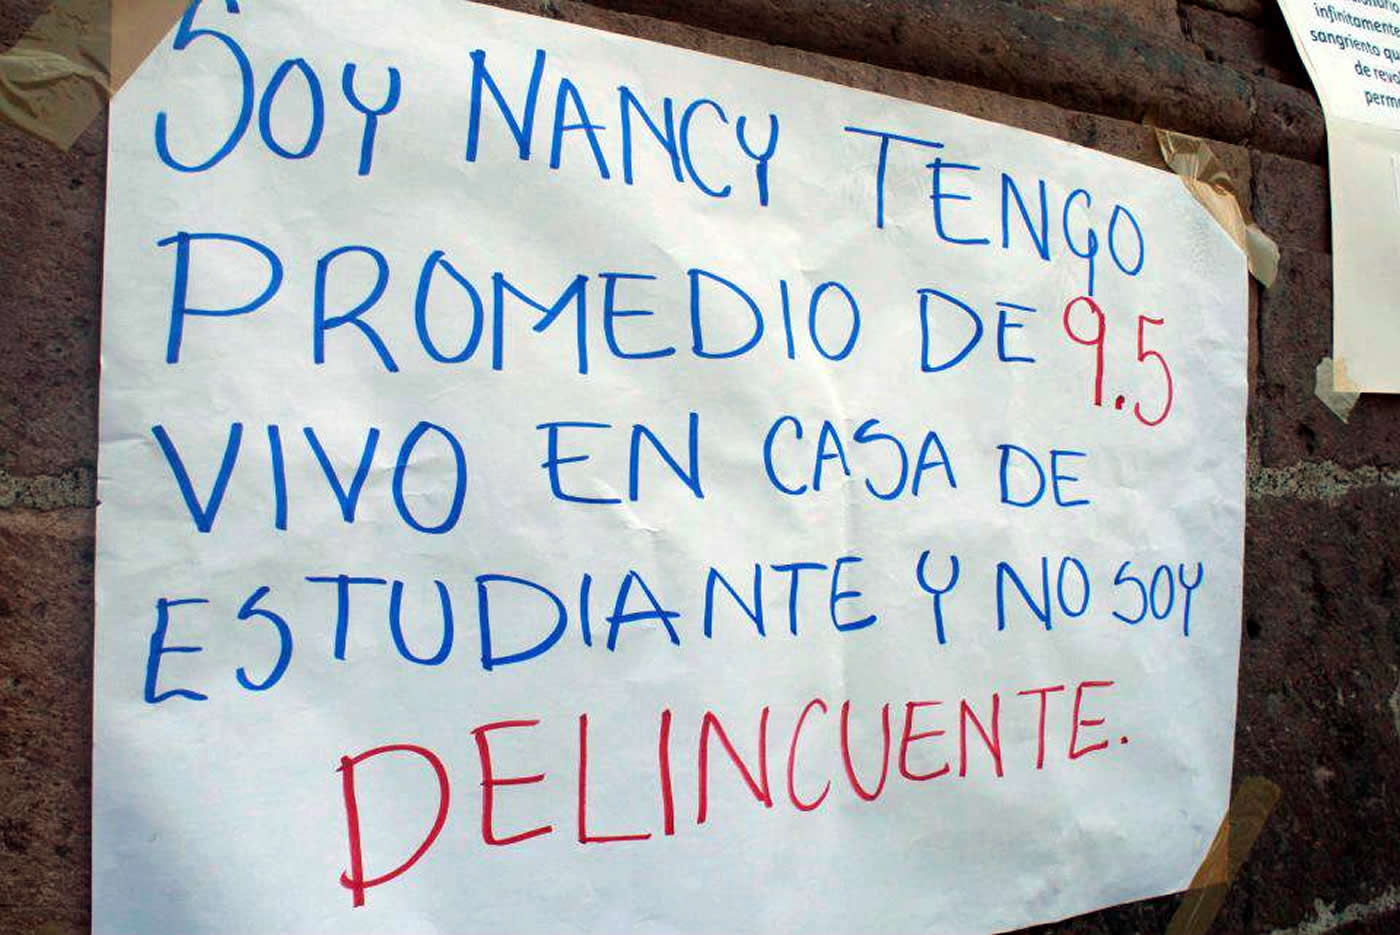 SOY NANCY TENGO
PROMEDIO DE 9.5
VIVO EN CASA DE
ESTUDIANTE Y NO SOY
DELINCUENTE.
infinitamente
sangriento